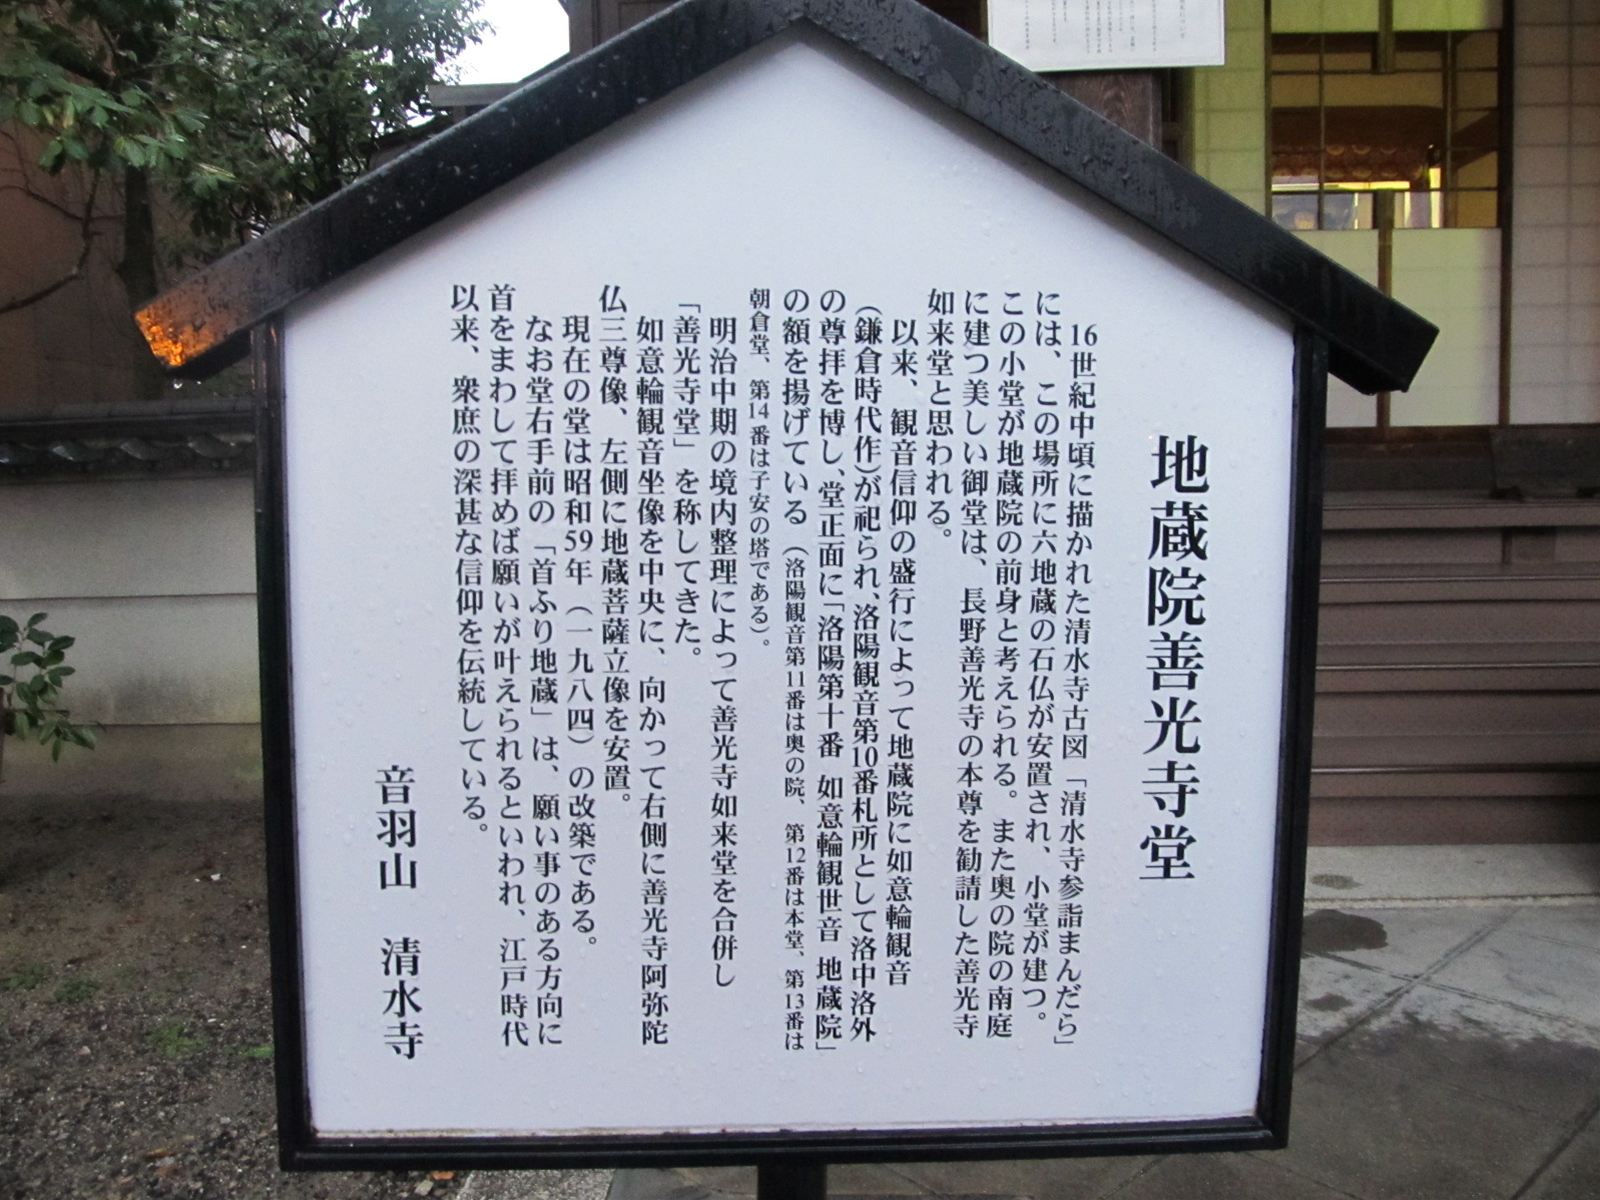 地蔵院善光寺堂
16世紀中頃に描かれた清水寺古図「清水寺参詣まんだら」
には、この場所に六地蔵の石仏が安置され、小堂が建つ。
この小堂が地蔵院の前身と考えられる。また奥の院の南庭
に建つ美しい御堂は、長野善光寺の本尊を勧請した善光寺
如来堂と思われる。
以来、観音信仰の盛行によって地蔵院に如意輪観音
（鎌倉時代作）が祀られ、洛陽観音第10番札所として洛中洛外
の尊拝を博し、堂正面に「洛陽第十番 如意輪観世音 地蔵院」
の額を揚げている（洛陽観音第11番は奥の院、第12番は本堂、第13番は
朝倉堂、第14番は子安の塔である）。
明治中期の境内整理によって善光寺如来堂を合併し
「善光寺堂」を称してきた。
如意輪観音坐像を中央に、向かって右側に善光寺阿弥陀
仏三尊像、左側に地蔵菩薩立像を安置。
現在の堂は昭和59年（一九八四）の改築である。
なお堂右手前の「首ふり地蔵」は、願い事のある方向に
首をまわして拝めば願いが叶えられるといわれ、江戸時代
以来、衆庶の深甚な信仰を伝統している。
音羽山 清水寺